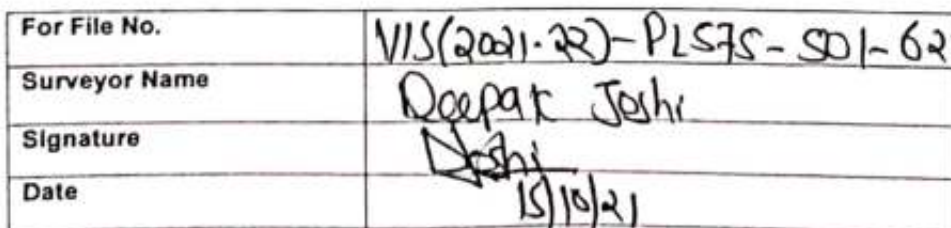 For File No. VIS(2021-22)-PL575-S01-62
Surveyor Name Deepak Joshi
Signature DJoshi
Date 15/10/21